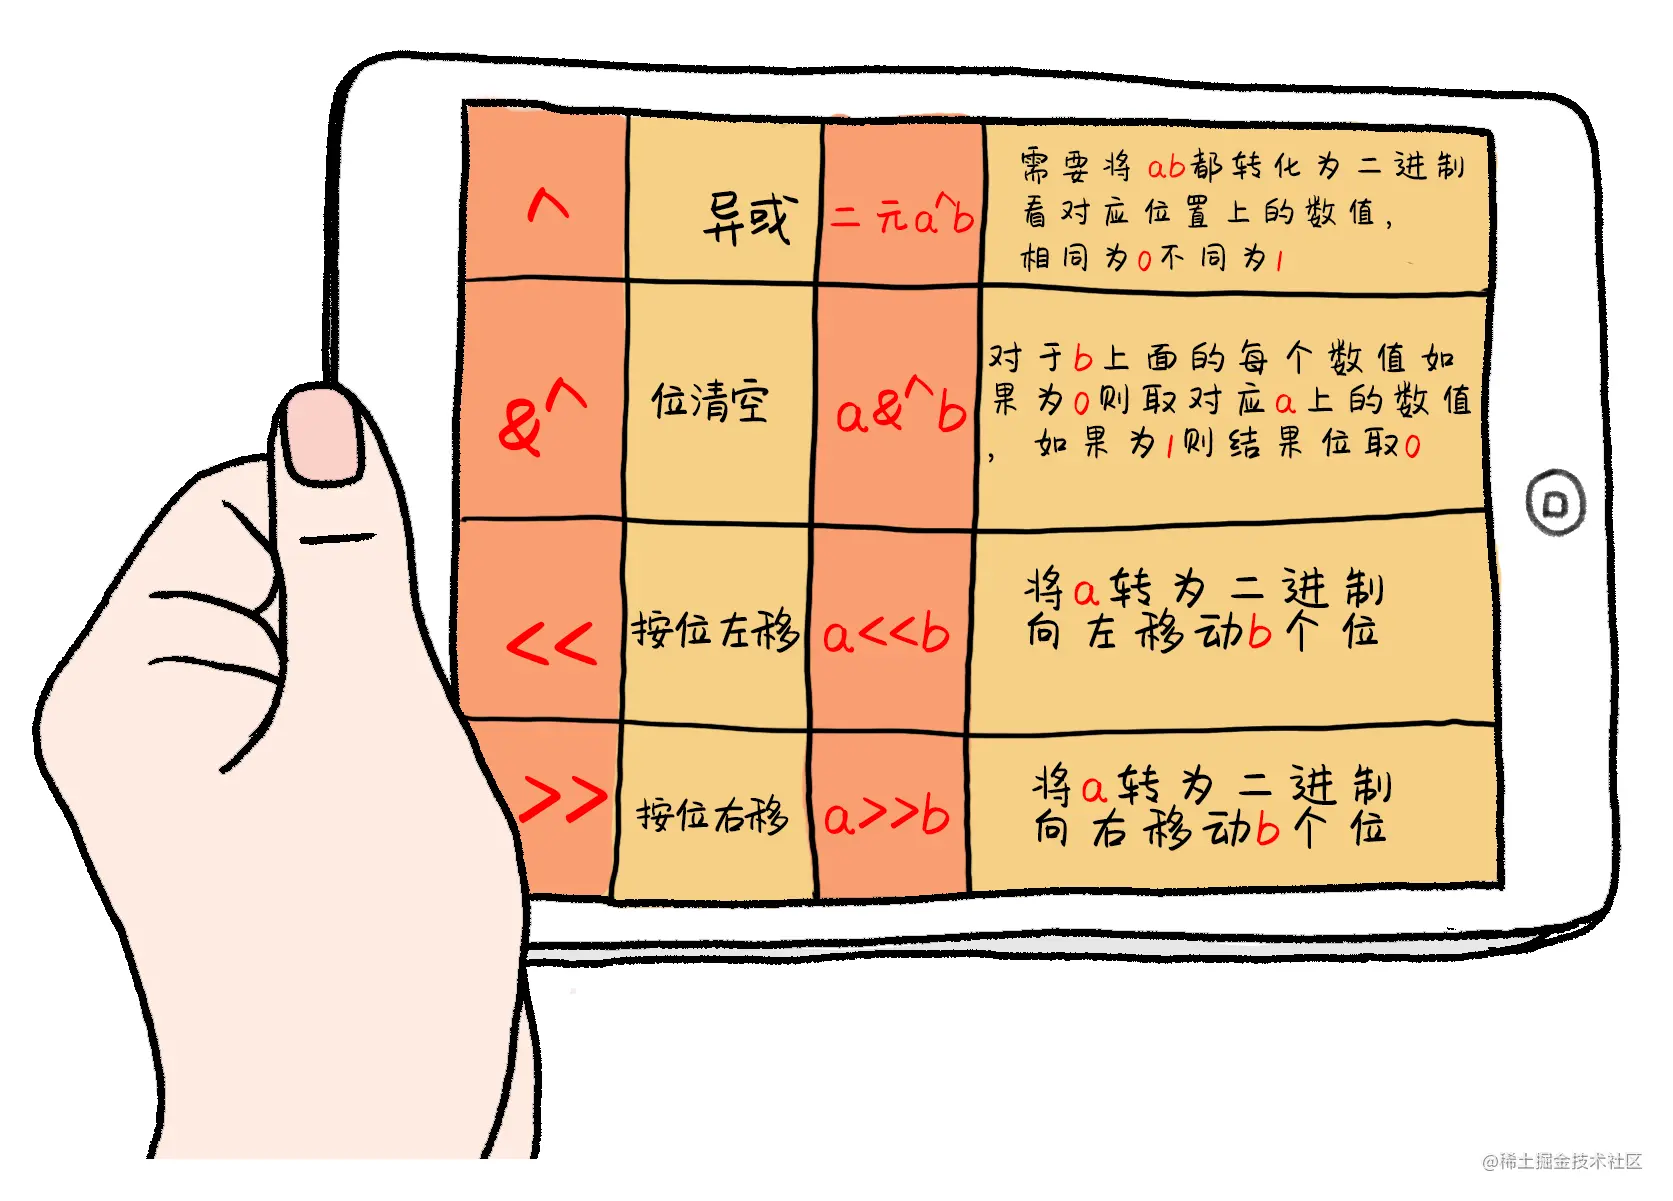 ^
异或
二元a^b
需要将ab都转化为二进制
看对应位置上的数值，
相同为0不同为1
&^
位清空
a&^b
对于b上面的每个数值如
果为0则取对应a上的数值
，如果为1则结果位取0
<<
按位左移
a<<b
将a转为二进制
向左移动b个位
>>
按位右移
a>>b
将a转为二进制
向右移动b个位
@稀土掘金技术社区